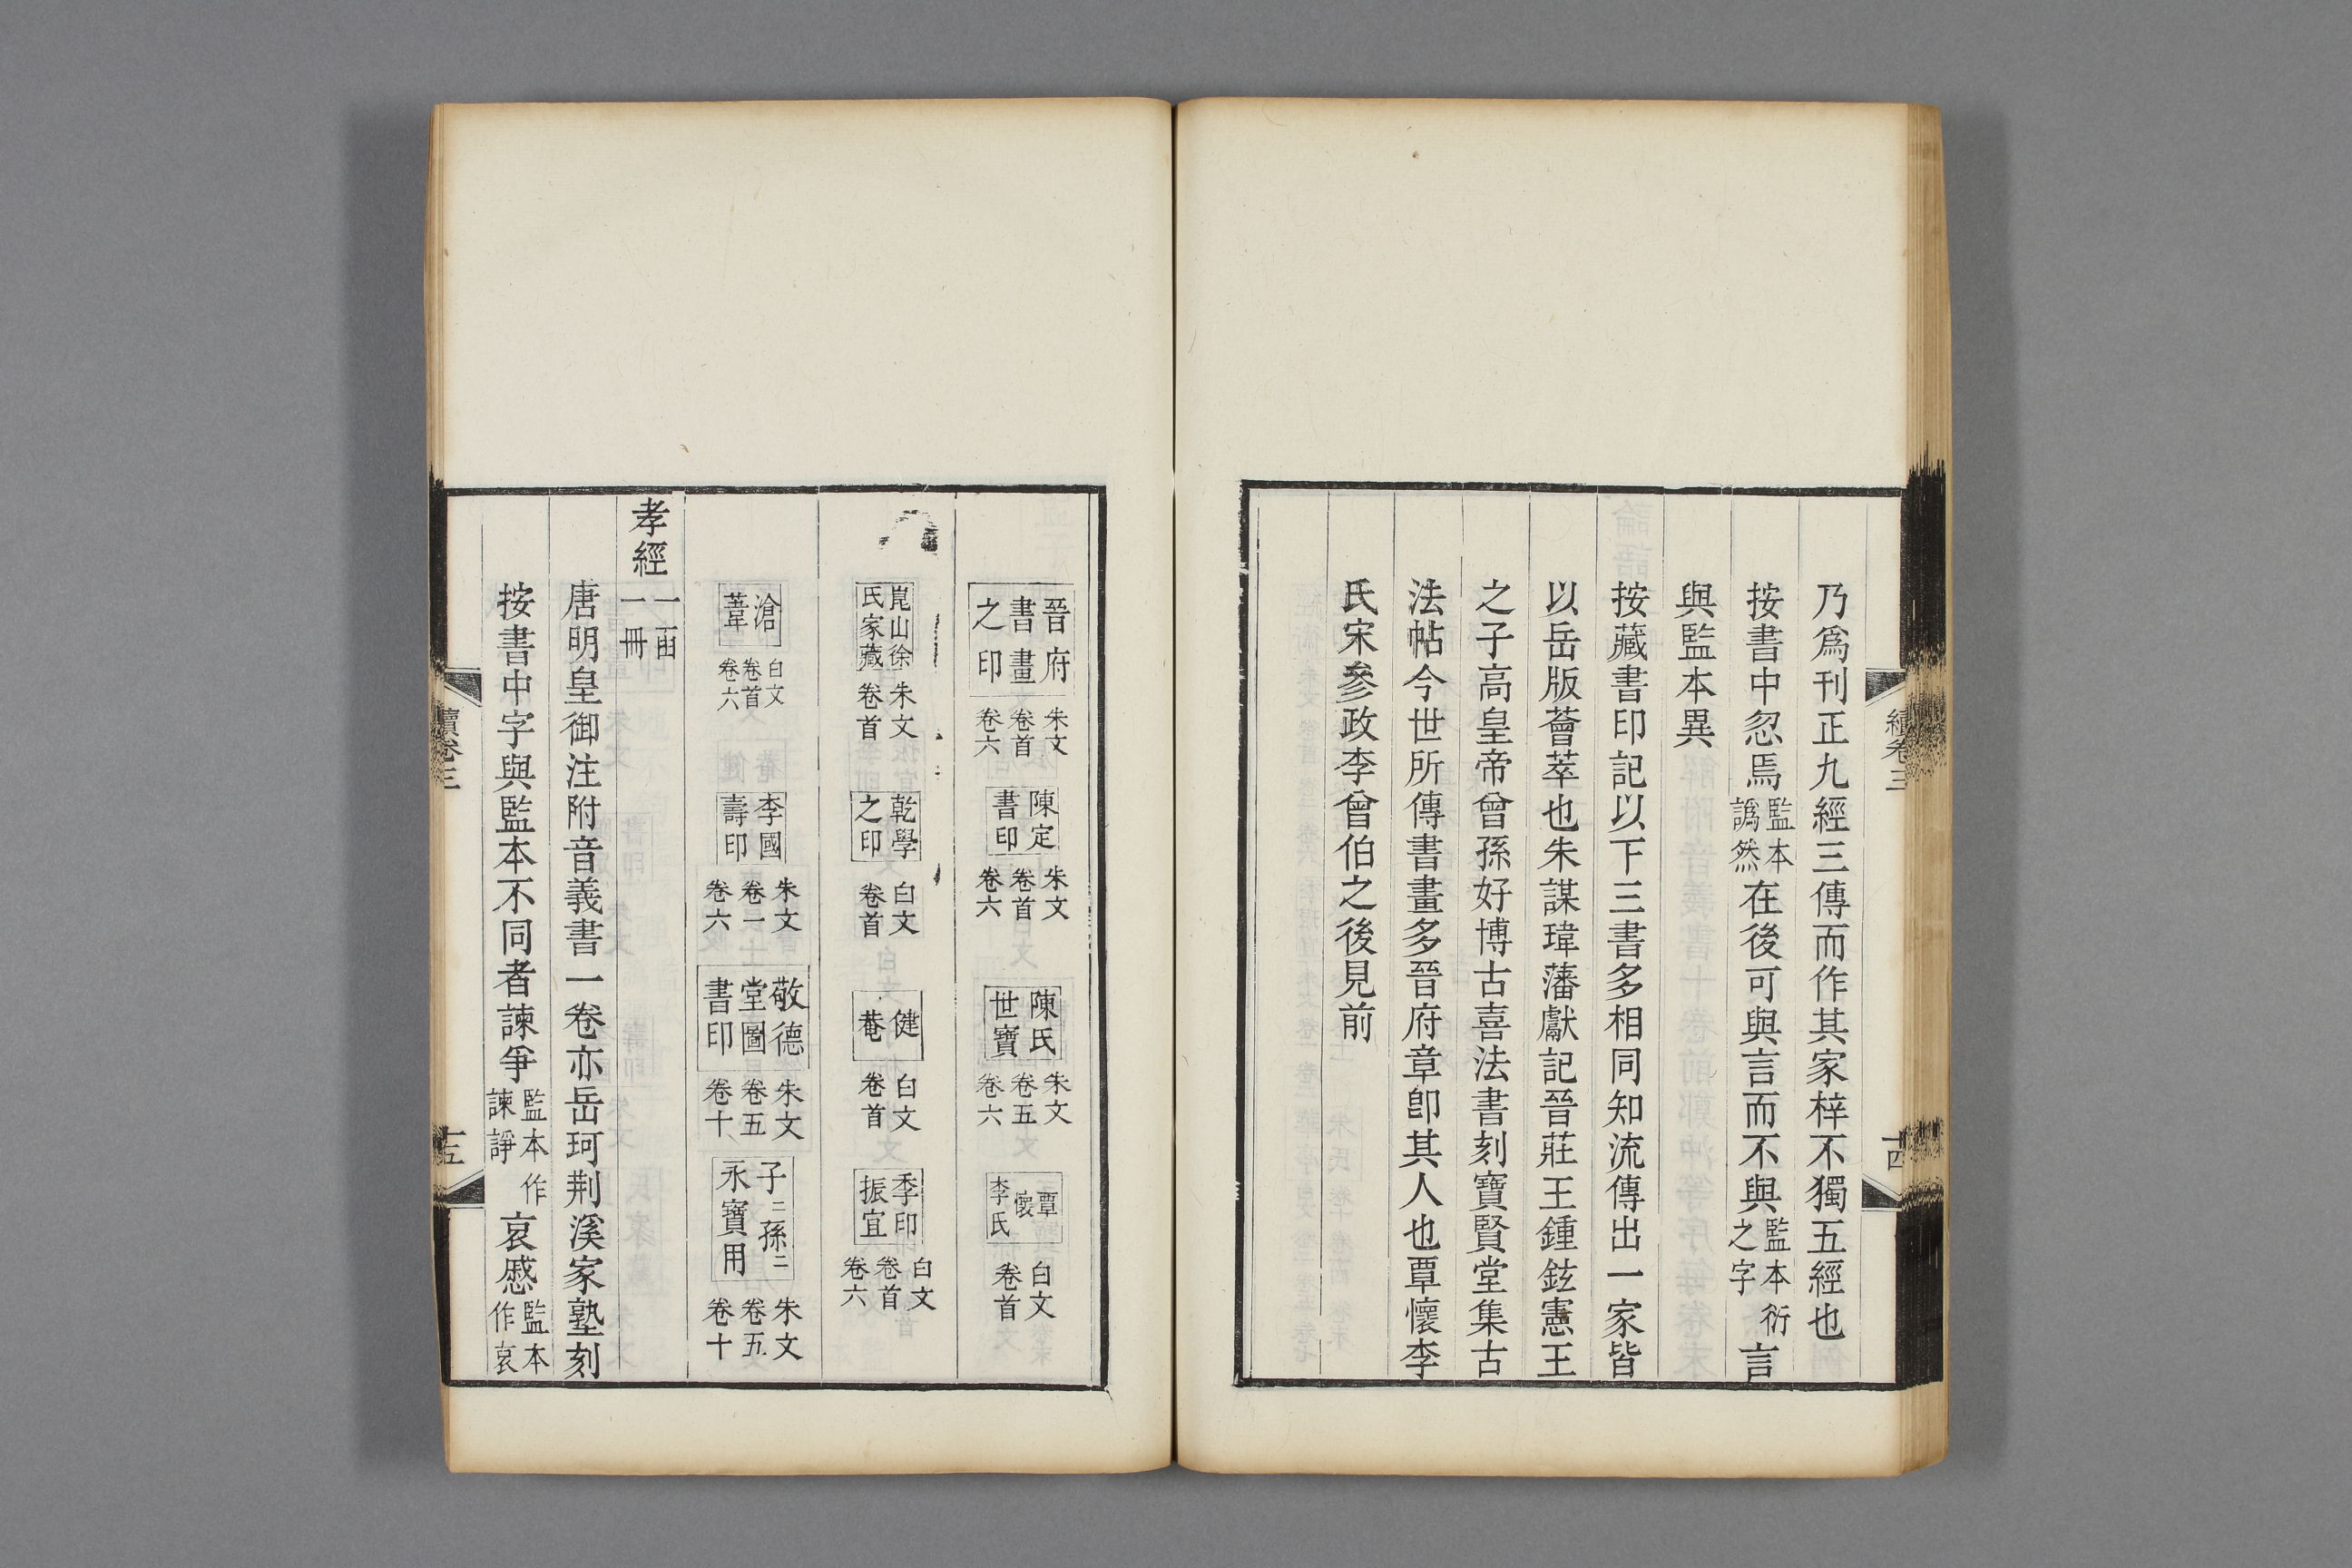 續卷三
十四
乃爲刊正九經三傳而作其家梓不獨五經也
按書中忽焉監本譌然在後可與言而不與監本衍之字言
與監本異
按藏書印記以下三書多相同知流傳出一家皆
以岳版薈萃也朱謀㙔藩獻記晉莊王鍾鉉憲王
之子高皇帝曾孫好博古喜法書刻寶賢堂集古
法帖今世所傳書畫多晉府章卽其人也覃懷李
氏宋參政李曾伯之後見前
晉府書畫之印 朱文卷首卷六 陳定書印 朱文卷首卷六 陳氏世寶 朱文卷五卷六 覃懷李氏 白文卷首
崑山徐氏家藏 朱文卷首 乾學之印 白文卷首 健菴 白文卷首 季印振宜 白文卷首卷六
滄葦 白文卷首卷六 李國壽印 朱文卷一卷六 敬德堂圖書印 朱文卷五卷十 子二孫二永寶用 朱文卷五卷十
孝經 一函一冊
唐明皇御注附音義書一卷亦岳珂荆溪家塾刻
按書中字與監本不同者諫爭監本作諫諍哀慼監本作哀
續卷三
十五